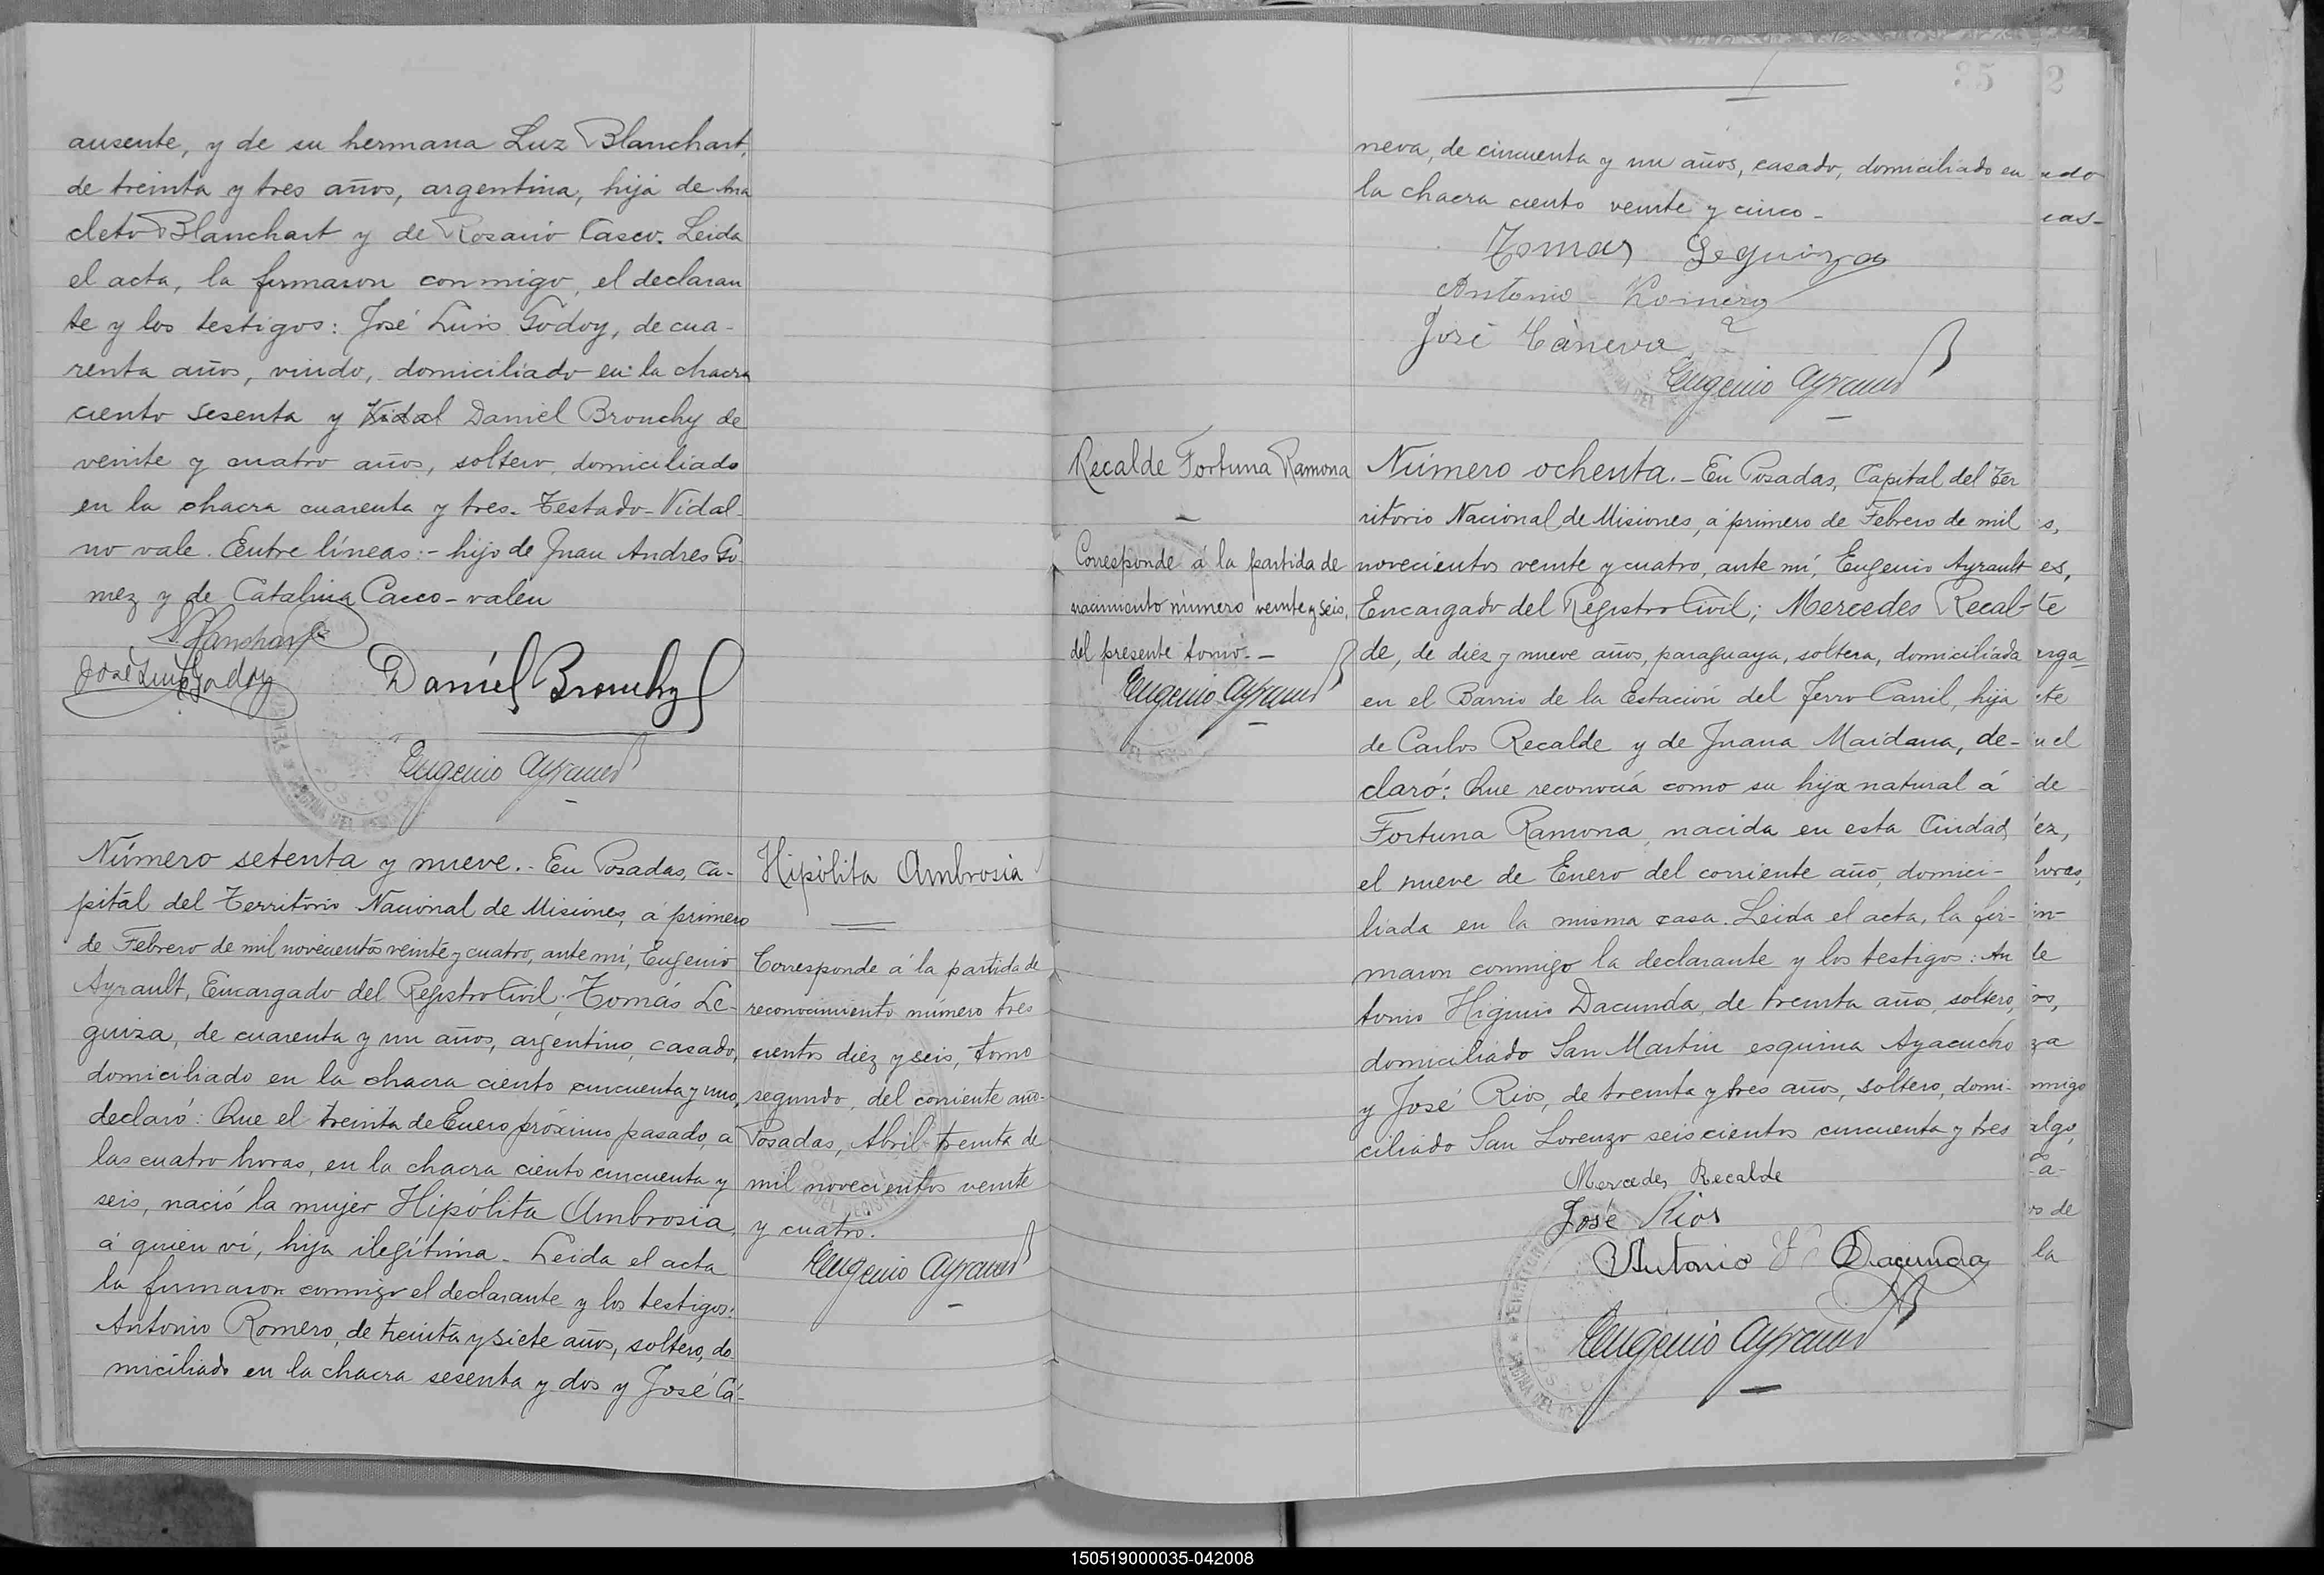 ausente, y de su hermana Luz Blanchart,
de treinta y tres años, argentina, hija de Ana
cleto Blanchart y de Rosario Casco. Leida
el acta, la firmaron conmigo, el declaran
te y los testigos: José Luis Godoy, de cua-
renta años, viudo, domiciliado en la chacra
ciento sesenta y Vidal Daniel Brouchy de
veinte y cuatro años, soltero, domiciliado
en la chacra cuarenta y tres. Testado-Vidal-
no vale. Entre líneas:- hijo de Juan Andres Go
mez y de Catalina Cacco-valen
Blanchart
José Luis Godoy
Daniel Brouchy
Eugenio Ayrault
Número setenta y nueve.- En Posadas, Ca-
pital del Territorio Nacional de Misiones, á primero
de Febrero de mil novecientos veinte y cuatro, ante mi, Eugenio
Ayrault, Encargado del Registro Civil; Tomás Le-
guiza, de cuarenta y un años, argentino, casado,
domiciliado en la chacra ciento cincuenta y uno,
declaró: Que el treinta de Enero próximo pasado, a
las cuatro horas, en la chacra ciento cincuenta y
seis, nació la mujer Hipólita Ambrosia,
á quien ví, hija ilegítima. Leida el acta
la firmaron conmigo el declarante y los testigos:
Antonio Romero, de treinta y siete años, soltero, do
miciliado en la chacra sesenta y dos y José Cá-
Hipólita Ambrosia
Corresponde á la partida de
reconocimiento número tres
cientos diez y seis, tomo
segundo, del corriente año-
Posadas, Abril treinta de
mil novecientos veinte
y cuatro.
Eugenio Ayrault
35
neva, de cincuenta y un años, casado, domiciliado en
la chacra ciento veinte y cinco-
Tomas Leguiza
Antonio Romero
José Cáneva
Eugenio Ayrault
Recalde Fortuna Ramona
Corresponde á la partida de
nacimiento número veinte y seis,
del presente tomo.-
Eugenio Ayrault
Número ochenta.- En Posadas, Capital del Ter
ritorio Nacional de Misiones, á primero de Febrero de mil
novecientos veinte y cuatro, ante mí, Eugenio Ayrault
Encargado del Registro Civil; Mercedes Recal-
de, de diez y nueve años, paraguaya, soltera, domiciliada
en el Barrio de la Estación del Ferro Carril, hija
de Carlos Recalde y de Juana Maidana, de-
claró: Que reconocía como su hija natural á
Fortuna Ramona, nacida en esta Ciudad,
el nueve de Enero del corriente año, domici-
liada en la misma casa. Leida el acta, la fir-
maron conmigo la declarante y los testigos: An
tonio Higinio Dacunda, de treinta años, soltero,
domiciliado San Martin esquina Ayacucho
y José Rios, de treinta y tres años, soltero, domi-
ciliado San Lorenzo seiscientos cincuenta y tres
Mercedes Recalde
José Rios
Antonio H Dacunda
Eugenio Ayrault
2
150519000035-042008